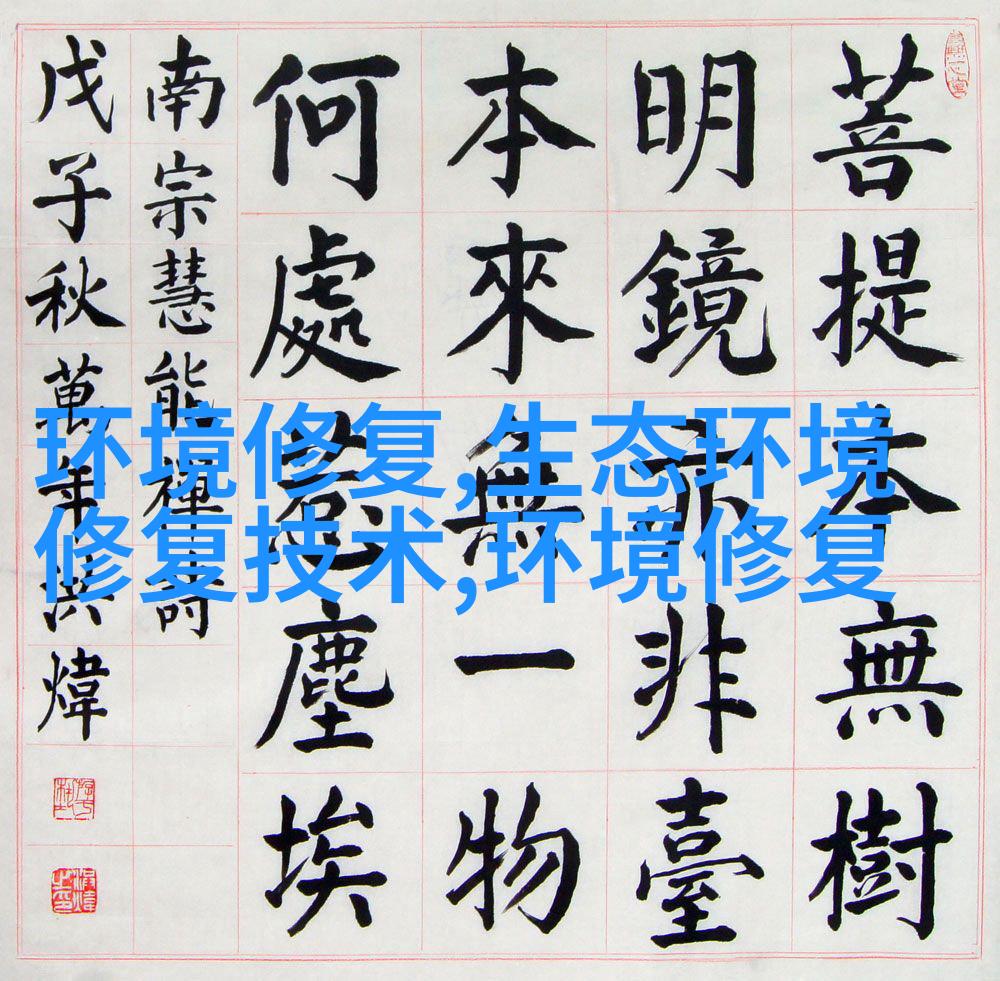 菩提本無樹
明鏡亦非臺
本來無一物
何處惹塵埃
南宗慧能禪詩
戊子秋萬年洪煒
环境修复,生态环境
修复技术,环境修复